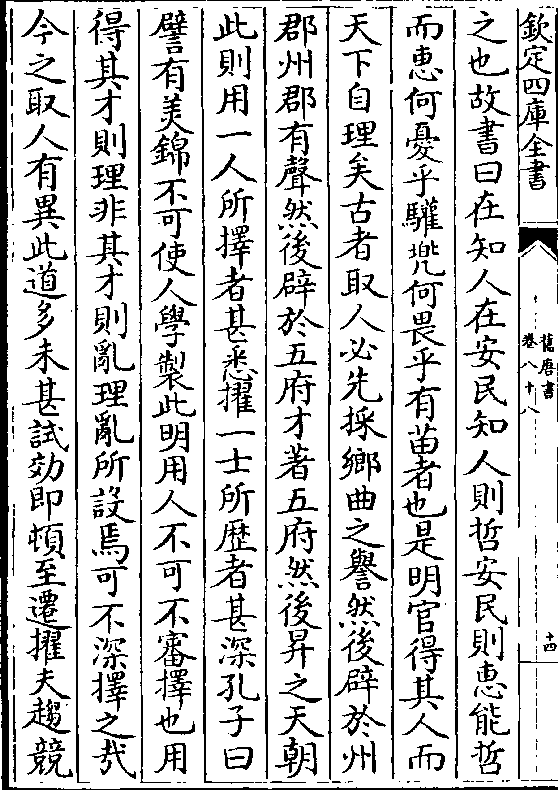 欽定四庫全書
舊唐書
卷八十八
十四
之也故書曰在知人在安民知人則哲安民則惠能哲
而惠何憂乎驩兠何畏乎有苗者也是明官得其人而
天下自理矣古者取人必先採鄉曲之譽然後辟於州
郡州郡有聲然後辟於五府才著五府然後昇之天朝
此則用一人所擇者甚悉擢一士所歴者甚深孔子曰
譬有美錦不可使人學製此明用人不可不審擇也用
得其才則理非其才則亂理亂所設焉可不深擇之㢤
今之取人有異此道多未甚試効即頓至遷擢夫趨競